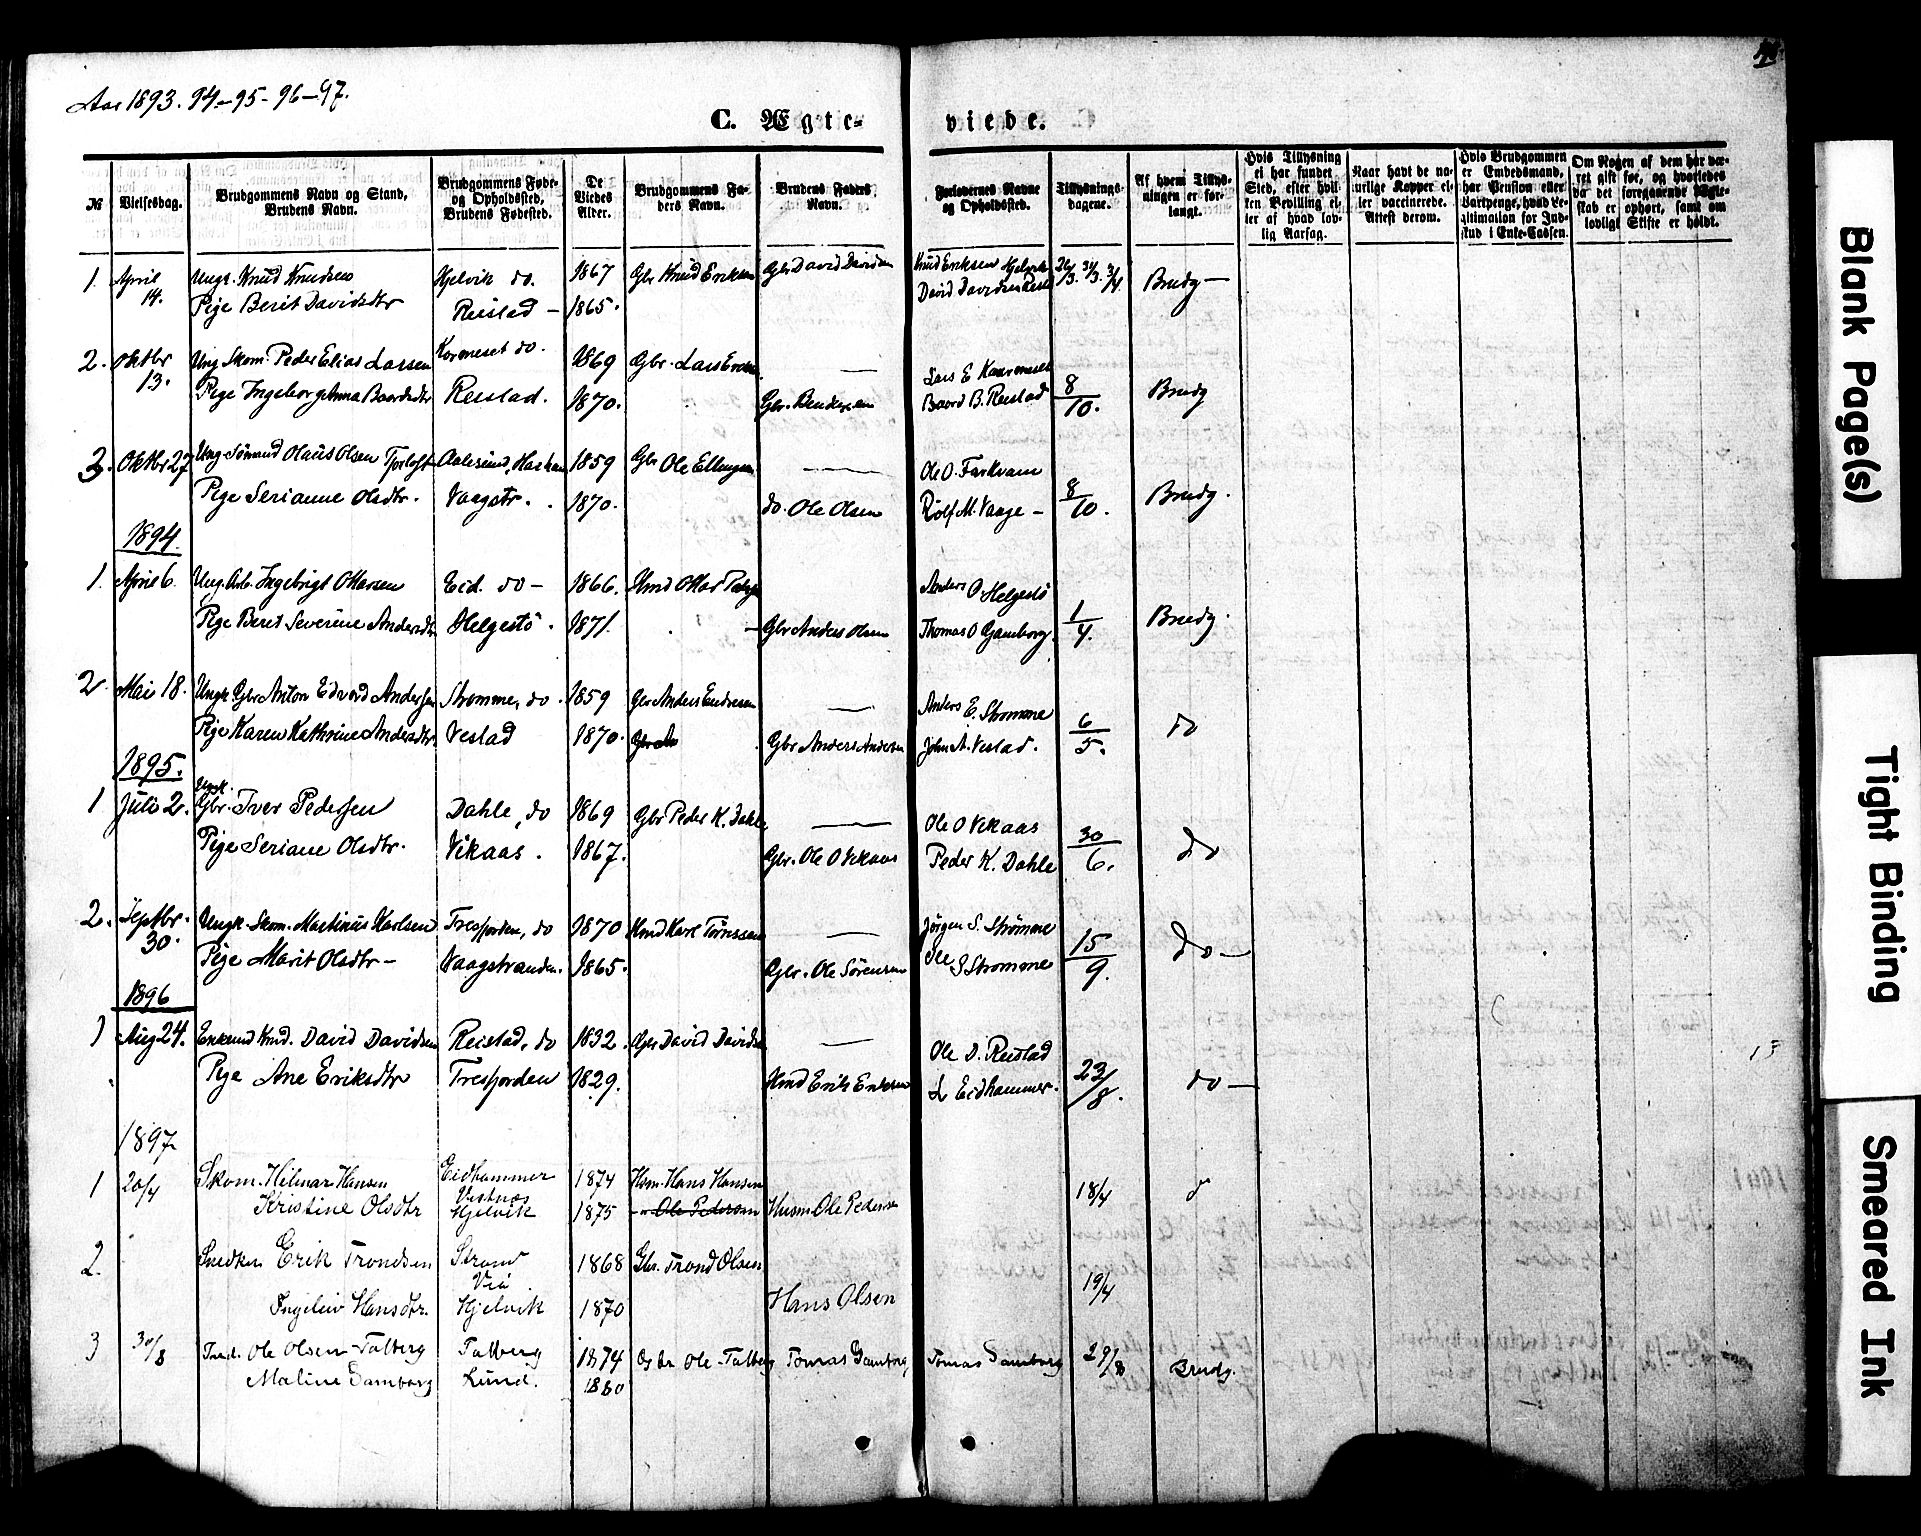 Aar 1893. 94-95-96-97.
C. Ægte-
viede.
№
Vielsesdag.
Brudgommens Navn og Stand,
Brudens Navn.
Brudgommens Føde-
og Opholdssted,
Brudens Fødested.
De
Viedes
Alder.
Brudgommens Fa-
ders Navn.
Brudens Faders
Navn.
Forlovernes Navne
og Opholdssted.
Tillysnings-
dagene.
Af hvem Tillys-
ningen er for-
langt.
Hvis Tillysning
ei har fundet
Sted, efter hvil-
ken Bevilling el-
ler af hvad lov-
lig Aarsag.
Naar havt de na-
turlige Kopper el-
ler vaccinerede.
Attest derom.
Hvis Brudgommen
er Embedsmand,
har Pension eller
Vartpenge, hvad Le-
gitimation for Ind-
skud i Enke-Cassen.
Om Nogen af dem har væ-
ret gift før, og hvorledes
da det foregaaende Ægte-
skab er ophørt, samt om
lovligt Skifte er holdt.
1. April 14. Ungk. Knud Knudsen Hjelvik do. 1867 Gbr Knud Eriksen Gbr David Davidsen Knud Eriksen Hjelvik 26/3. 31/3. 3/4 Brudg —
Pige Berit Davidsdtr Reistad — 1865. David Davidsen Reist
2. Oktbr 13. Ung Skom. Peder Elias Larsen Kormeset do. 1869 Gbr. Lars — Lars E
Pige Ingeborg Anna Baardsdtr Reistad. 1870. Gbr. Baord B. Reistad 8/10. Brudg
3. Oktbr 27 Ung. Olaus Olsen Aalesund, 1859 Gbr Ole Ellingsen — Ole O. Farkvam
Pige Serianne Olsdtr. Vaagstr. 1870. do. Ole Olsen Rolf M. Vaage — 8/10. Brudg.
1894.
1. April 6. Ung. Arb. Ingebrigt Ottersen Eid. do — 1866. Hmd Anders O. Helgestö
Pige Beret Severine Andersdtr Helgestö. 1871. — Gbr Anders Olsen Thomas O Gamborg. 1/4. Brudg.
2. Mai 18. Ungk Gbr Anton Edvard Andersen Stromme, do. 1859 Gbr Anders Endresen — Anders E. Stromme
Pige Karen Kathrine Andersdtr. Vestad 1870. Gbr A Gbr Anders Andersen John A. Vestad. 6/5. do
1895.
1 Juli 2. Ungk. Gbr. Iver Pedersen Dahle, do 1869 Gbr Peder K. Dahle — Ole O Vikaas
Pige Seriane Olsdtr. Vikaas. 1867. Gbr. Ole O Vikaas Peder K. Dahle 30/6. do
2. Septbr. 30. Ungk. Skom. Martinus Karlsen Tresfjorden, do 1870 Hmd Karl — Jørgen S. Strömme
Pige Marit Olsdtr — Vaagstranden. 1865. Gbr. Ole Sörensen Ole S Stromme 15/9. do —
1896
1 Aug 24. Enkemd Kmd. David Davidsen Reistad, do 1832. Gbr David Davidsen — Ole D. Reistad
Pige Ane Eriksdtr Tresfjorden 1829. Hmd Erik Eriksen L Eidhammer. 23/8. do —
1897
1 20/4 Skom. Hilmar Hansen Eidhammer Vestnes 1874 Hsm. Hans Hansen 18/4 d
Kristine Olsdtr Hjelvik 1875 — Ole Pedersen Husm Ole Pedersen
2. Snedker Erik Trondsen Strand Vid 1868 Gbr. Trond Olsen 19/4
Ingeleiv Hansdtr. Hjelvik 1870 Hans Olsen
3 30/8 Ole Olsen Talberg Talberg 1874 Ole Talberg Tomas Gamborg, Tomas Gamborg 29/8 Brudg.
Maline Gamborg Lund. 1880
Blank Page(s)
Tight Binding
Smeared Ink